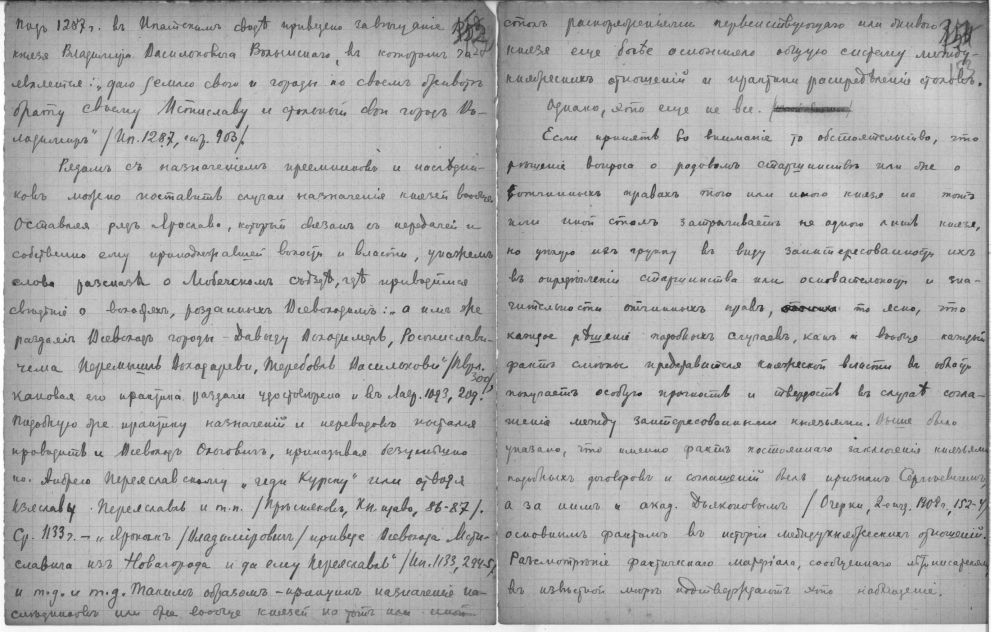 Подъ 1287 г. въ Ипатскомъ сводѣ приведено завѣщаніе
князя Владиміра Васильковича Волынскаго, въ которомъ
является: „даю землю свою и городы по своемъ животѣ
брату своему Мстиславу и стольный свои городъ Во-
ладимиръ" /Ип. 1287, стр. 903/.
Рядомъ съ назначеніемъ преемниковъ и наслѣдни-
ковъ можно поставить случаи назначенія князей вообще.
Оставляя рядъ Ярослава, который связанъ съ передачей и
собственно ему принадлежавшей волости и власти, укажемъ
слова разсказа о Любечскомъ съѣздѣ, гдѣ приводится
свѣдѣніе о волостяхъ, розданныхъ Всеволодомъ: „а имъ же
раздаялъ Всеволодъ городы Давыду Володимерь, Ростислави-
чема Перемышль Володареви, Теребовль Василькови"
300/,
каковая его практика раздачи удостовѣрена и въ Лавр. 1093, 209.
Подобную же практику назначеній и переводовъ пытался
проводить и Всеволодъ Ольговичъ, приказывая
Андрею Переяславскому „иди Курску" или отводя
Изяславу Переяславль и т. п. /Прѣсняковъ, Кн. право, 86-87/.
Ср. 1133 г. – „Яропалкъ /Владиміровичъ/ приведе Всеволода Мсти-
славича изъ Новагорода и да ему Переяславль" /Ип. 1133, 294-5/
и т. д. и т. д. Такимъ образомъ – принципъ назначенія на-
слѣдниковъ или же вообще князей на тотъ или иной
столъ распоряженіемъ первенствующаго или
князя еще болѣе осложняло общую систему между-
княжескихъ отношеній и практики распредѣленія столовъ.
Однако, это еще не все.
Если принять во вниманіе то обстоятельство, что
рѣшеніе вопроса о родовомъ старшинствѣ или же о
вотчинныхъ правахъ того или иного князя на тотъ
или иной столъ затрагиваетъ не одного лишь князя,
но цѣлую ихъ группу въ виду заинтересованности ихъ
въ опредѣленіи старшинства или основательности и зна-
чительности отчинныхъ правъ, то ясно, что
каждое рѣшеніе подобныхъ случаевъ, какъ и вообще каждый
фактъ смѣны представителя княжеской власти въ волости
получаетъ особую прочность и твердость въ случаѣ согла-
шенія между заинтересованными князьями. Выше было
указано, что именно фактъ постояннаго заключенія князьями
подобныхъ договоровъ и соглашеній былъ признанъ Сергѣевичемъ,
а за нимъ и акад. Дьяконовымъ /Очерки, 2-е изд. 1908 г., 152-4/
основнымъ фактомъ въ исторіи междукняжескихъ отношеній.
Разсмотрѣніе фактическаго матеріала, сообщеннаго лѣтописателями,
въ извѣстной мѣрѣ подтверждаетъ это наблюденіе.